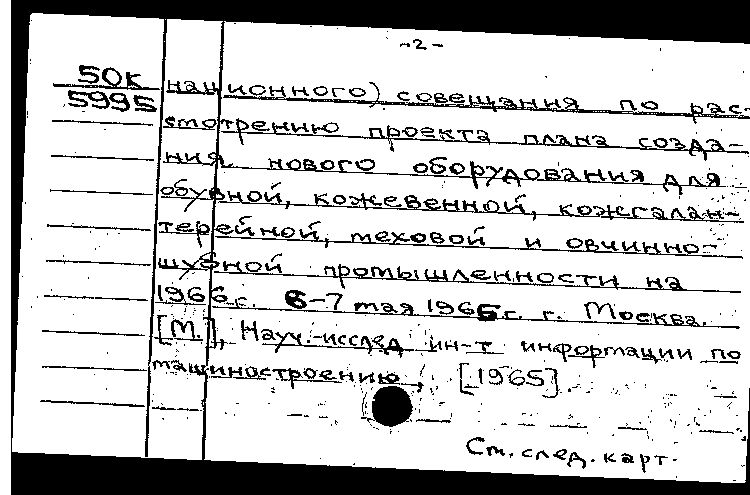 -2-
50к
5995
национного) совещания по рас-
смотрению проекта плана созда-
ния нового оборудования для
обувной, кожевенной, кожгалан-
терейной, меховой и овчинно-
шубной промышленности на
1966 г. 6-7 мая 1965г. г. Москва.
[М.], Науч.-исслед ин-т информации по
машиностроению, [1965].
См. след. карт.